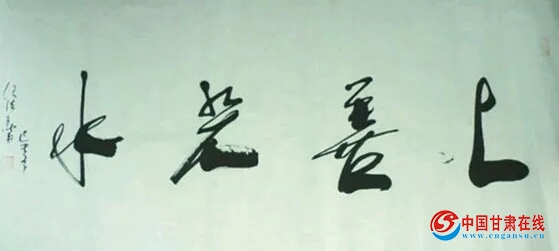 上善若水
中国甘肃在线
www.cngansu.cn